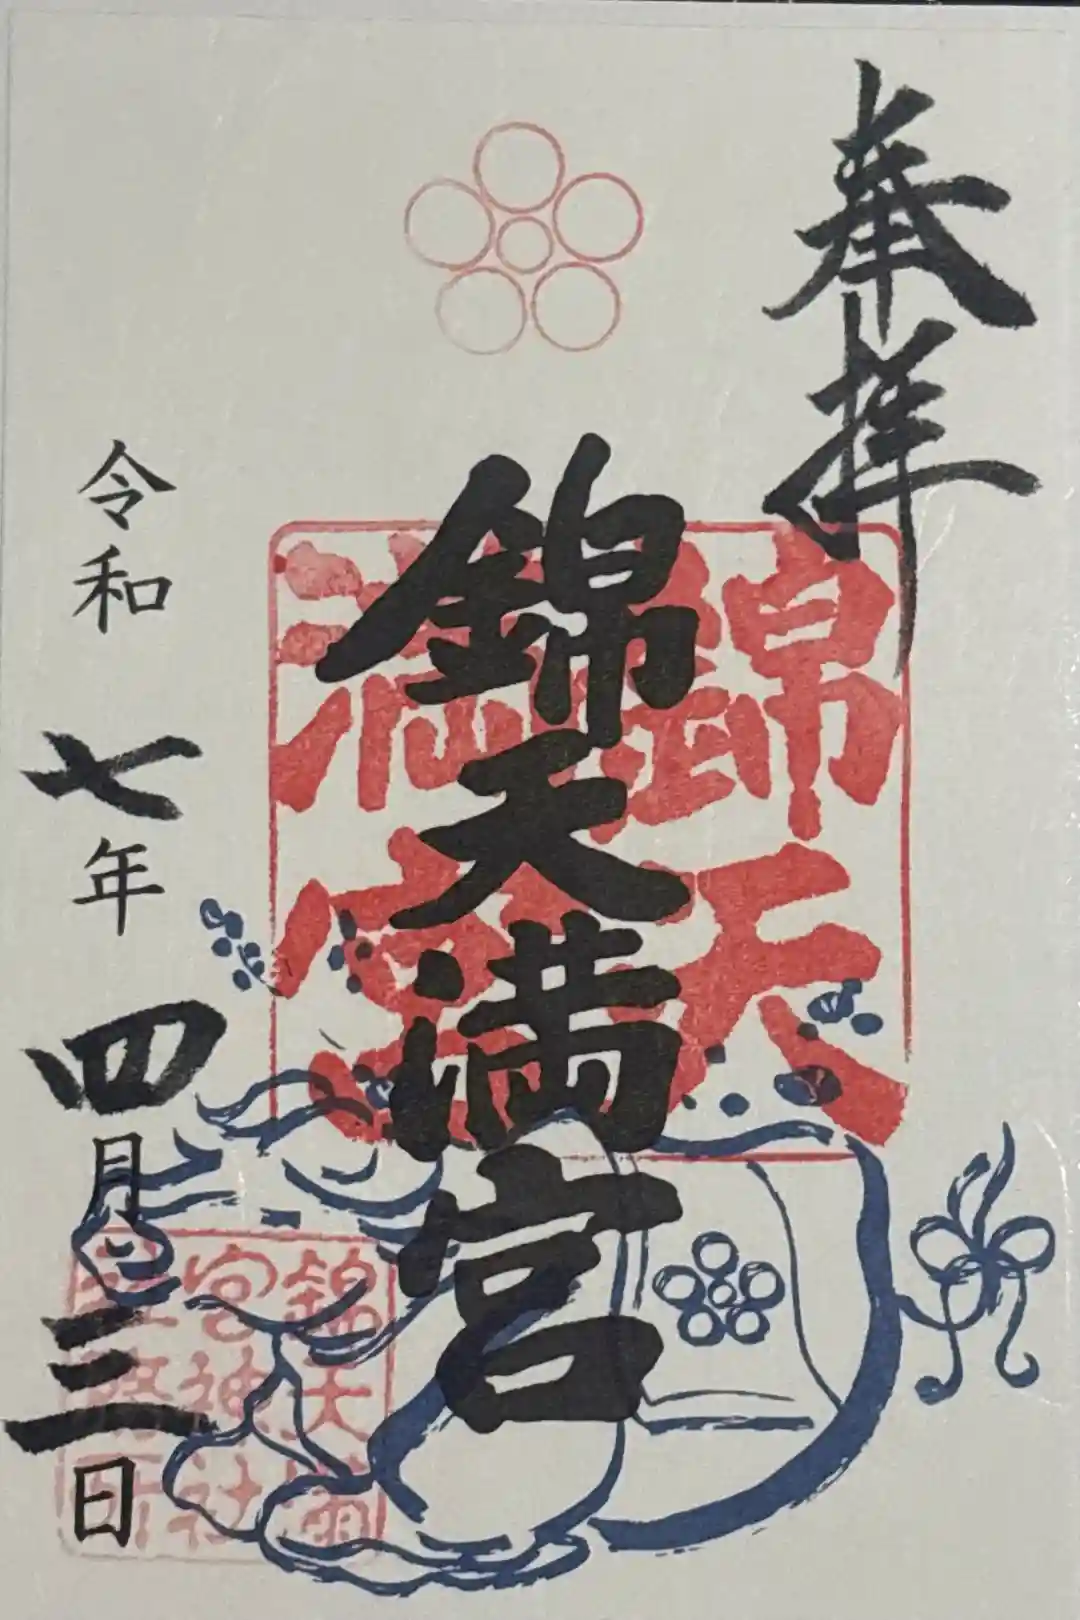 奉拝
錦天満宮
錦天
満宮
令和七年四月三日
錦天満
宮神社